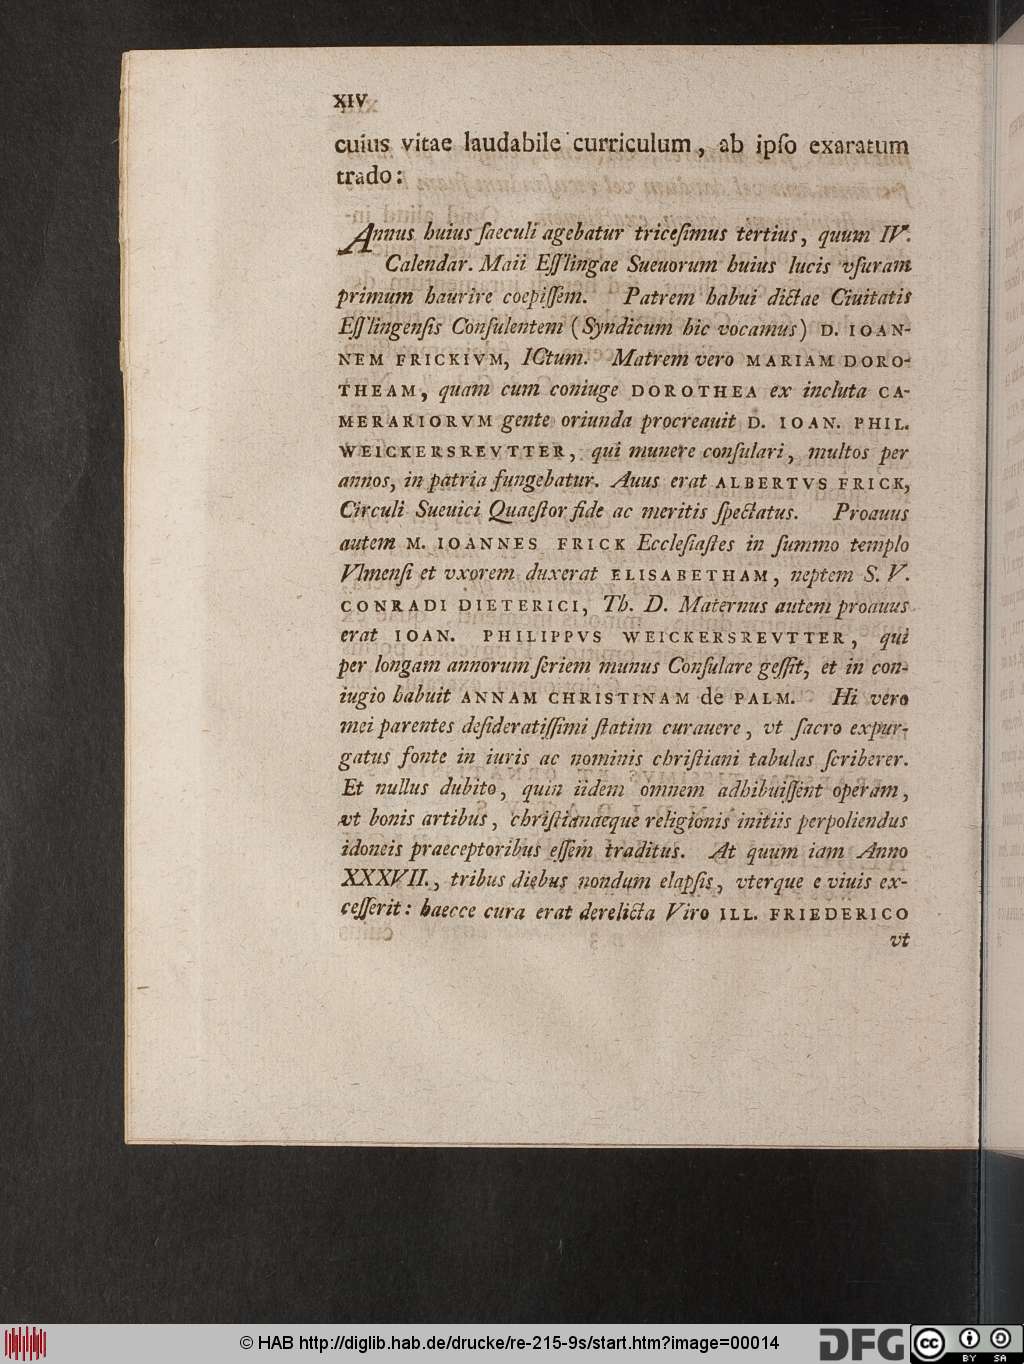 XIV
cuius vitae laudabile curriculum, ab ipſo exaratum
trado:
Annus huius ſaeculi agebatur triceſimus tertius, quum IV.
Calendar. Maii Eſſlingae Sueuorum huius lucis vſuram
primum haurire coepiſſem. Patrem habui dictae Ciuitatis
Eſſlingenſis Conſulentem (Syndicum hic vocamus) D. IOAN-
NEM FRICKIVM, ICtum. Matrem vero MARIAM DORO-
THEAM, quam cum coniuge DOROTHEA ex incluta CA-
MERARIORVM gente oriunda procreauit D. IOAN. PHIL.
WEICKERSREVTTER, qui munere conſulari, multos per
annos, in patria fungebatur. Auus erat ALBERTVS FRICK,
Circuli Sueuici Quaeſtor fide ac meritis ſpectatus. Proauus
autem M. IOANNES FRICK Eccleſiaſtes in ſummo templo
Vlmenſi et vxorem duxerat ELISABETHAM, neptem S. V.
CONRADI DIETERICI, Th. D. Maternus autem proauus
erat IOAN. PHILIPPVS WEICKERSREVTTER, qui
per longam annorum ſeriem munus Conſulare geſſit, et in con-
iugio habuit ANNAM CHRISTINAM de PALM. Hi vero
mei parentes deſideratiſſimi ſtatim curauere, vt ſacro expur-
gatus fonte in iuris ac nominis chriſtiani tabulas ſcriberer.
Et nullus dubito, quin iidem omnem adhibuiſſent operam,
vt bonis artibus, chriſtianaeque religionis initiis perpoliendus
idoneis praeceptoribus eſſem traditus. At quum iam Anno
XXXVII., tribus diebus nondum elapſis, vterque e viuis ex-
ceſſerit: haecce cura erat derelicta Viro ILL. FRIEDERICO
vt
© HAB http://diglib.hab.de/drucke/re-215-9s/start.htm?image=00014
DFG
cc
BY SA